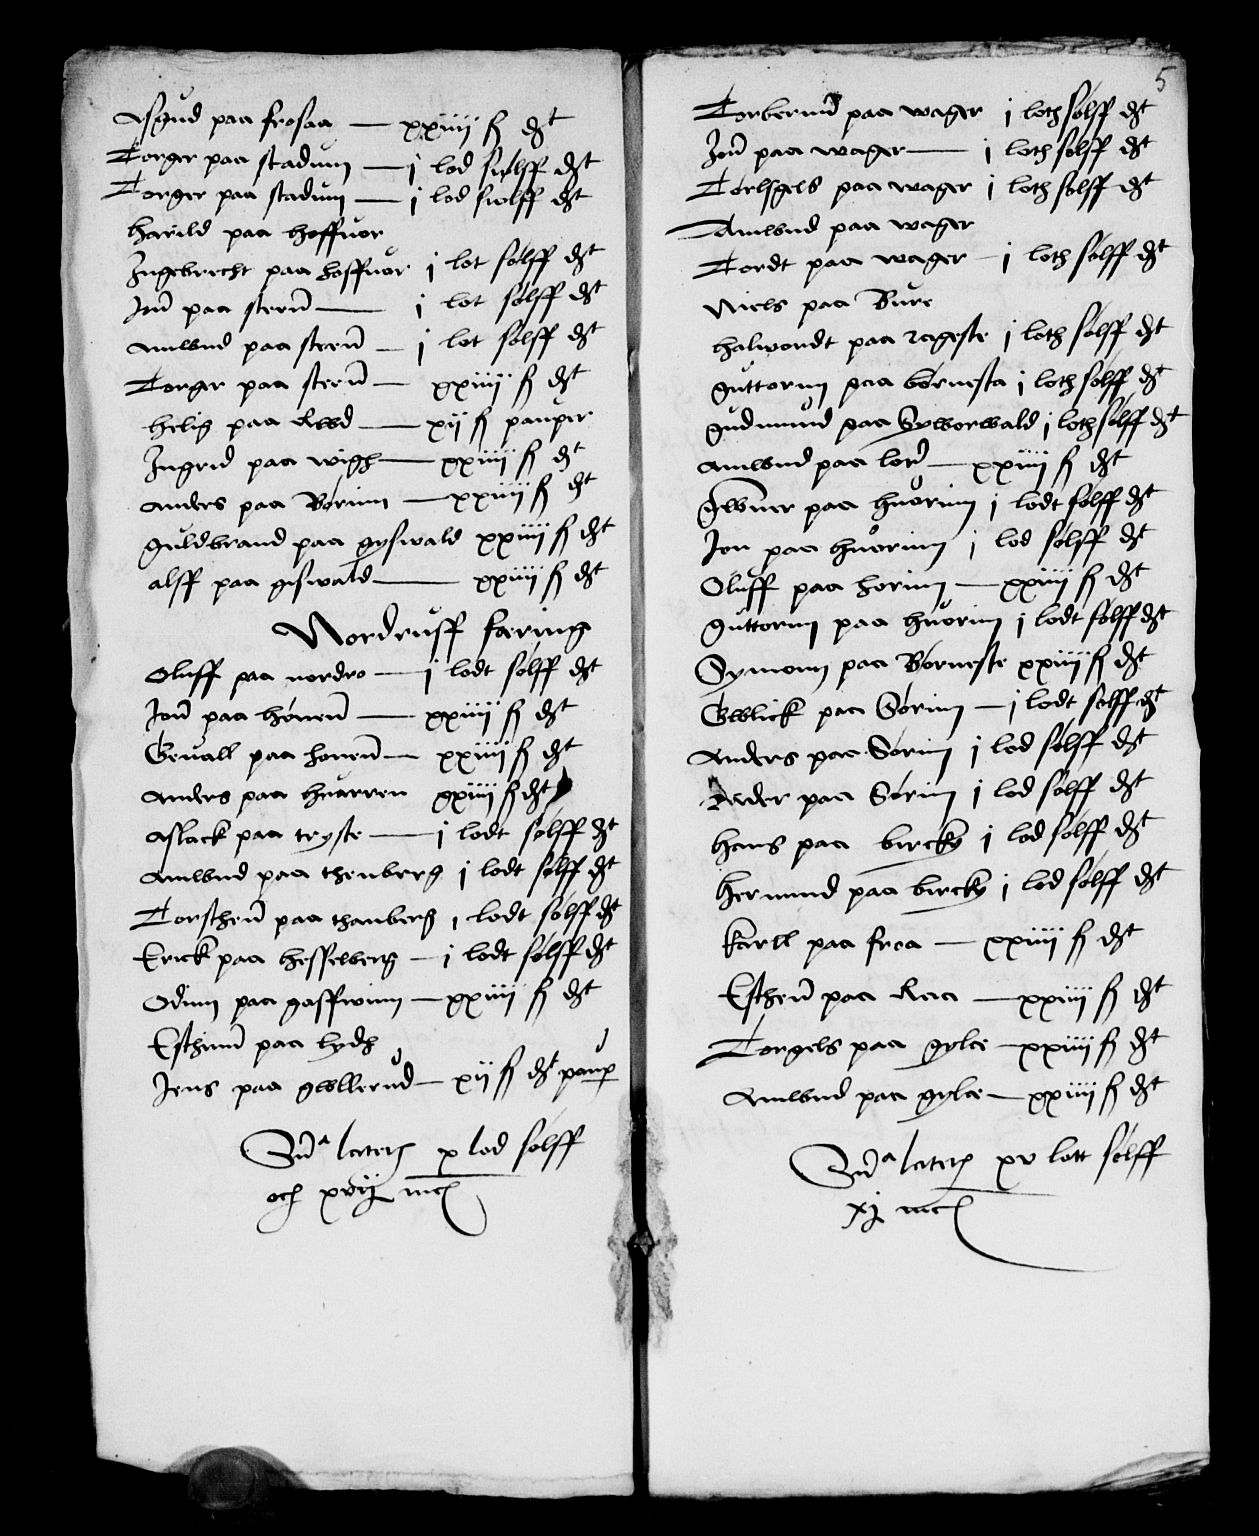 Asgud paa frosaa — xxiiij ß dt
Torger paa stadum — j lod sølff dt
Torger paa stadum — j lod sølff dt
Harild paa hoffuor
Ingebrecht paa hoffuor j lot sølff dt
Jon paa steen — j lot sølff dt
Amwnd paa steen — j lot sølff dt
Torger paa steen — xxiiij ß dt
Helig paa Rwd — xij ß pauper
Ingrid paa wigh — xxiiij ß dt
Anders paa Børim — xxiiij ß dt
Guldbrand paa gyswald xxiiij ß dt
Alff paa giswald — xxiiij ß dt
Nordruff færing
Oluff paa nordro — j lodt sølff dt
Jon paa hønen — xxiiij ß dt
Geuall paa honen — xxiiij ß dt
Anders paa huarren xxiiij ß dt
Aslack paa tryste — j lodt sølff dt
Amwnd paa thenberg j lodt sølff dt
Torsthen paa thanberg j lodt sølff dt
Erick paa hesselberg — j lodt sølff dt
Odum paa gaffwim — xxiiij ß dt
Esthinn paa lydh
Jens paa gwllerud — xij ß dt paup
Sua lateris x lod sølff
och xvij mc
5
Torberin paa wager j loth sølff dt
Jon paa wager — j loth sølff dt
Torlsgels paa wager j loth sølff dt
Amwnd paa wager
Tordt paa wager — j loth sølff dt
Niels paa Bure
Halwordt paa rageste j loth sølff dt
Guttorm paa børnesta j loth sølff dt
Gudmund paa Syworwald j loth sølff dt
Amwnd paa lor — xxiiij ß dt
Gwner paa huorim j lodt sølff dt
Jon paa huorim j lod sølff dt
Oluff paa horim — xxiiij ß dt
Guttorm paa huorim j lodt sølff dt
Symonn paa Børneste xxiiij ß dt
Gwlick paa Sørim — j lodt sølff dt
Anders paa Sørim j lod sølff dt
Peder paa Sørim j lod sølff dt
Hans paa bircky j lod sølff dt
Hermund paa bircky j lod sølff dt
Karll paa froa — xxiiij ß dt
Esthen paa Raa — xxiiij ß dt
Torgels paa gylæ — xxiiij ß dt
Amwnd paa gylæ — xxiiij ß dt
Sua lateris xv lott sølff
xj mc